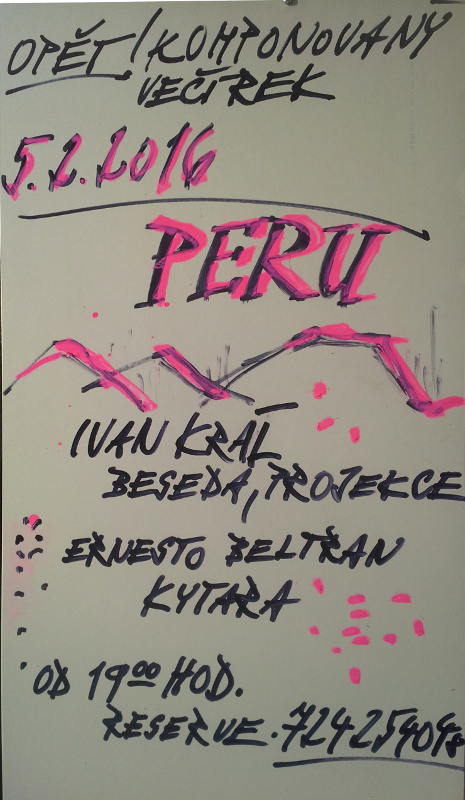 OPĚT / KOMPONOVANY
VEČÍREK
5.2.2016
PERU
IVAN KRÁL
BESEDA, PROJEKCE
ERNESTO BELTRAN
KYTARA
OD 19 00 HOD.
RESERVE. 724254048